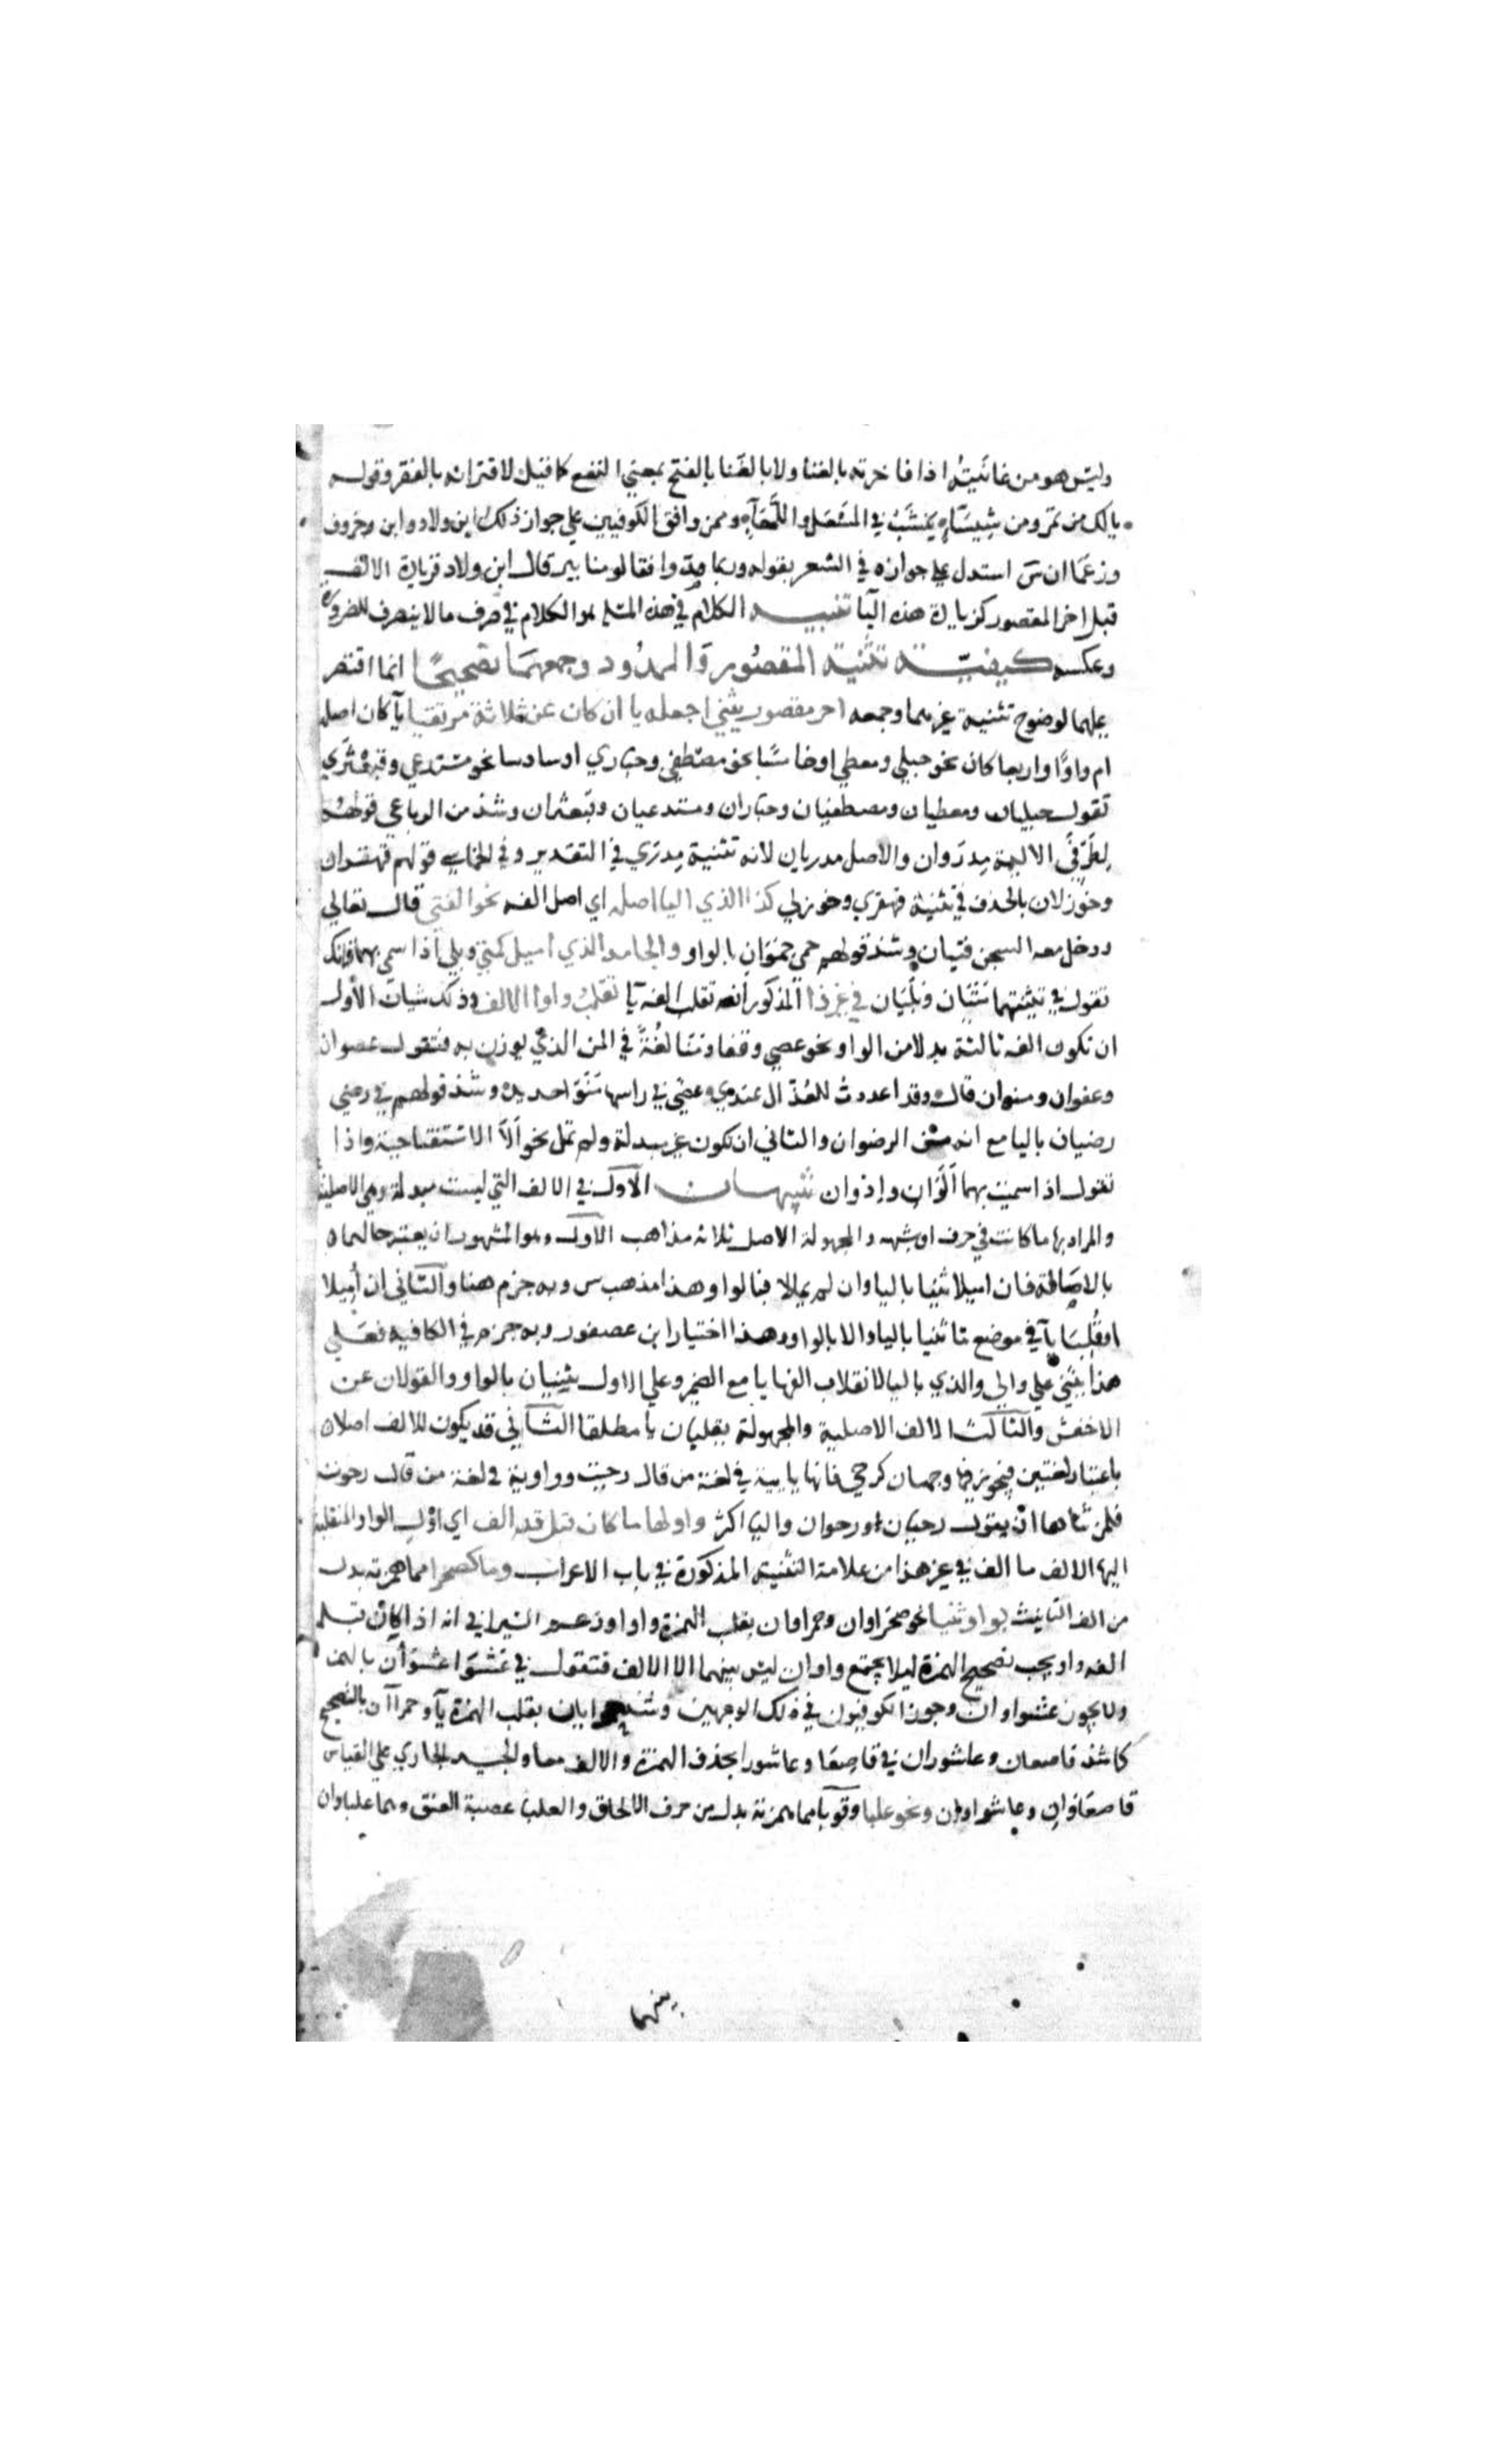 وليس هو من غانيته اذا فاخرته بالغنا ولا بالغنا بالفتح بمعني النفع كما قيل لاقترانه بالفقر وقوله
يالك من تمر ومن شيشآء ينشب في المسعل واللهآء وممن وافق الكوفيين علي جواز ذلك ابن ولاد وابن خروف
وزعما ان س استدل علي جوازه في الشعر بقوله وربما مدوا فقالوا منابير قال ابن ولاد فزيادة الالف
قبل اخر المقصور كزيادة هذه اليا تنبيه الكلام في هذه المسئلة هو الكلام في صرف ما لا ينصرف للضرورة
وعكسه كيفية تثنية المقصور والممدود وجمعهما تصحيحًا انما اقتصر
عليهما لوضوح تثنية غيرهما وجمعه اخر مقصور يثني اجعله يا ان كان عن ثلاثة مرتقيا يآ كان اصله
ام واوًا رابعا كان نحو حبلي ومعطي او خامسًا نحو مصطفي وحباري او سادسا نحو مستدعي وقبعثري
تقول حبليان ومعطيان ومصطفيان وحباريان ومستدعيان وقبعثران وشذ من الرباعي قولهم
لطرفي الالية مذروان والاصل مذريان لانه تثنية مذري في التقدير وفي الخماسي قولهم قهقران
وخوزلان بالحذف في تثنية قهقري وخوزلي كذا الذي اليا اصله اي اصل الفه نحو الفتي قال تعالي
ودخل معه السجن فتيان وشذ قولهم في حمي حموان بالواو والجامد الذي اميل كمتي وبلي اذا سمي بهما فانك
تقول في تثنيتهما متيان وبليان في غير ذا المذكور انه تقلب الفه يا تقلب واوا الالف وذلك شيان الاول
ان تكون الفه ثالثة بدلا من الواو نحو عصي وقفا ومنا لغة في المن الذي يوزن به فتقول عصوان
وقفوان ومنوان قال وقد اعددت للعذال عندي عصي في راسها منوا حديد وشذ قولهم في رضي
رضيان باليا مع انه من الرضوان والثاني ان تكون غير مبدلة ولم تمل نحو ألا الاستفتاحية واذا
تقول اذا سميت بهما ألوان وإذوان تنبيهات الاول في الالف التي ليست مبدلة وهي الاصلية
والمراد بها ما كانت في حرف او شبهه والمجهولة الاصل ثلاثة مذاهب الاول وهو المشهور ان يعتبر حالهما
بالامالة فان اميلا ثنيا باليا وان لم يمالا فبالواو وهذا مذهب س وبه جزم هنا والثاني ان أميلا
او قلبا يآ في موضع ما ثنيا باليا والا بالواو وهذا اختيار ابن عصفور وبه جزم في الكافية فعلي
هذا يثني علي والي والذي باليا لانقلاب الفها يا مع الضمير وعلي الاول يثنيان بالواو والقولان عن
الاخفش والثالث الالف الاصلية والمجهولة يقلبان يا مطلقا الثاني قد يكون للالف اصلان
باعتبار لغتين فيجوز فيها وجهان كرحي فانها يايية في لغة من قال رحيت وواوية في لغة من قال رحوت
فلمن ثناها ان يقول رحيان ورحوان واليا اكثر واولها ما كان قبل قد الف اي اول الواو المنقلبة
اليها الالف ما الف في غير هذا من علامة التثنية المذكورة في باب الاعراب وما كصحرا مما همزته بدل
من الف التانيث بواو ثنيا نحو صحراوان وحمراوان بقلب الهمزة واوا وزعم السيرافي انه اذا كان قبل
الفه واو يجب تصحيح الهمزة ليلا يجتمع واوان ليس بينهما الا الالف فتقول في عشوا عشوأن بالهمز
ولا يجوز عشواوان وجوز الكوفيون في ذلك الوجهين وشذ حمرايان بقلب الهمزة يآ وحمراآن بالتصحيح
كما شذ قاصعان وعاشوران في قاصعا وعاشورا بحذف الهمزة والالف معا والجيد الجاري علي القياس
قاصعاوان وعاشوراوان ونحو علبا وقوبآ مما همزته بدل من حرف الالحاق والعلبا عصبة العنق وهما علباوان
بينهما